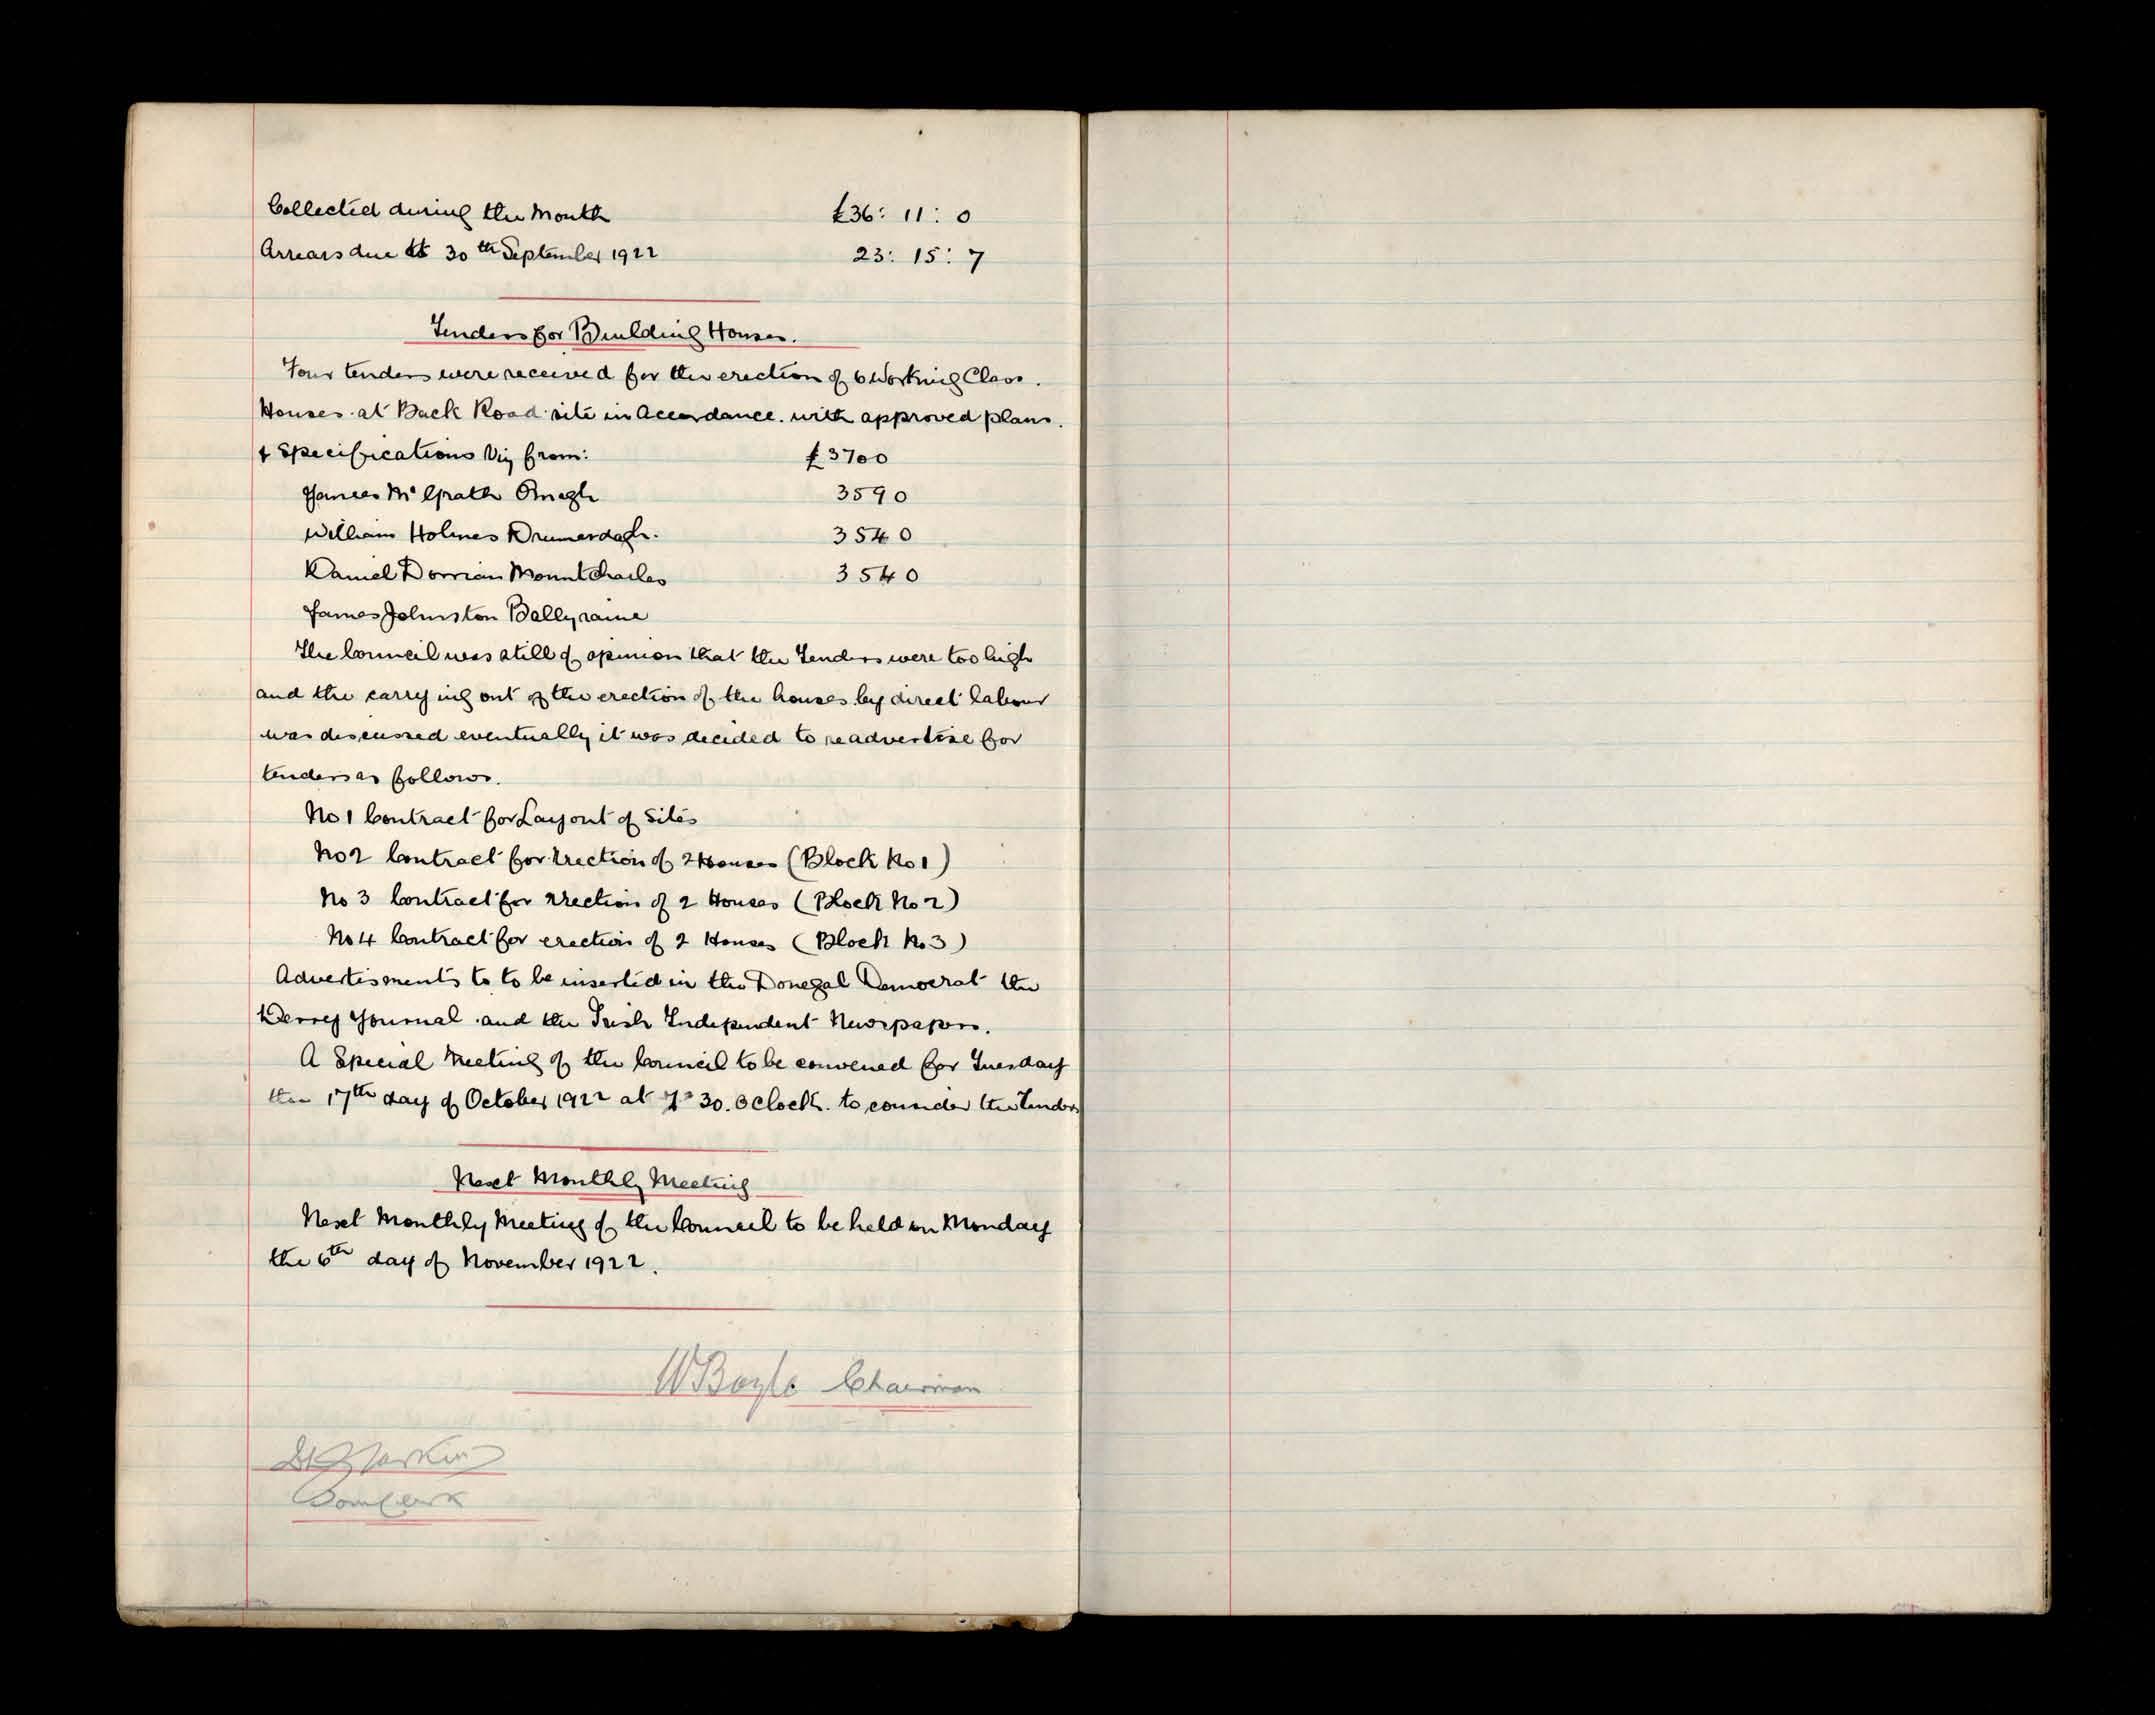 Collected during the Month £36: 11: 0
Arrears due at 30th September 1922 23: 15: 7
Tenders for Building Houses.
Four tenders were received for the erection of 6 Working Class.
Houses at Back Road site in accordance. with approved plans.
& Specifications Viz from: £3700
James McGrath Omagh 3590
William Holmes 3540
Daniel Dorrian Mountcharles 3540
James Johnston Ballyraine
The Council was still of opinion that the Tenders were too high
and the carrying out of the erection of the houses by direct labour
was discussed eventually it was decided to readvertise for
tenders as follows.
No 1 Contract for Layout of Sites
No 2 Contract for Erection of 2 Houses (Block No 1)
No 3 Contract for Erection of 2 Houses (Block No 2)
No 4 Contract for erection of 2 Houses (Block No 3)
Advertisments to to be inserted in the Donegal Democrat the
Derry Journal and the Irish Independent Newspapers.
A Special Meeting of the Council to be convened for Tuesday
the 17th day of October 1922 at 7 30. O Clock. to consider the Tenders
Next Monthly Meeting
Next Monthly Meeting of the Council to be held on Monday
the 6th day of November 1922.
W Boyle Chairman